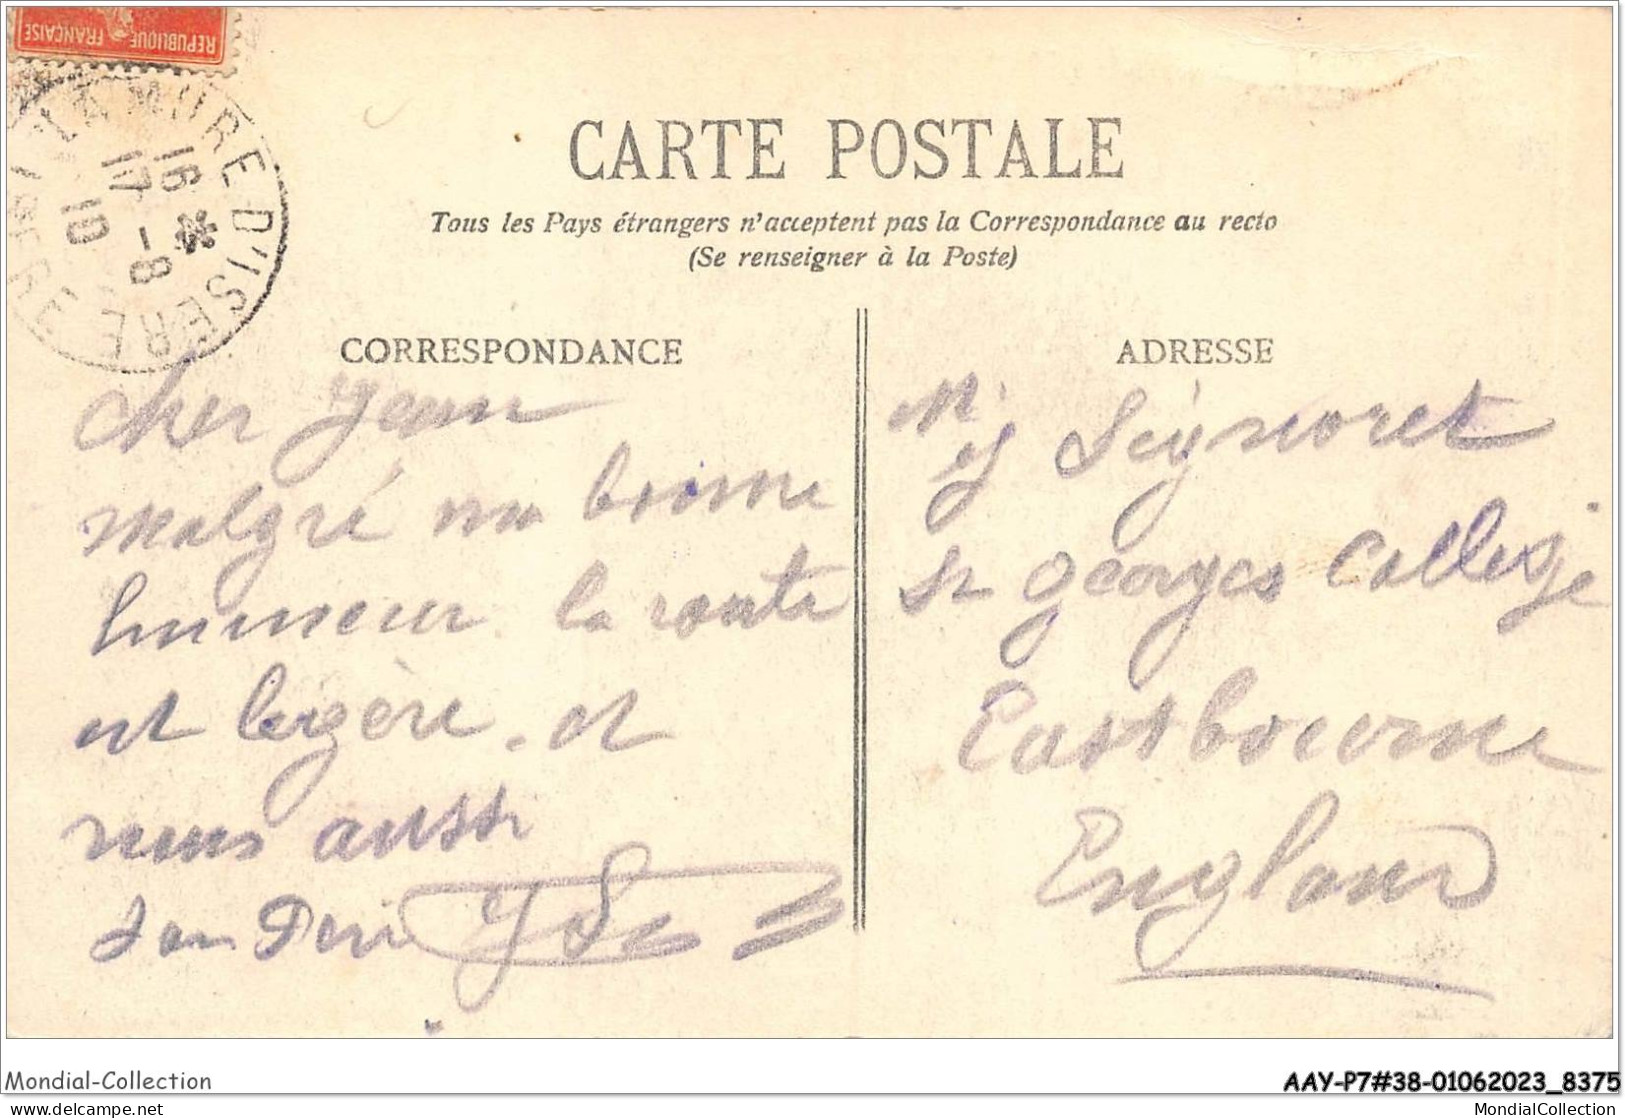 REPUBLIQUE FRANÇAISE
LA MURE D'ISERE
16 *
17 -8
10
CARTE POSTALE
Tous les Pays étrangers n'acceptent pas la Correspondance au recto
(Se renseigner à la Poste)
CORRESPONDANCE
cher Jean
malgré ma bonne
humeur la route
est legère. et
nous aussi
ton
ADRESSE
Mr
J Seignoret
St Georges College
Eastbourne
England
Mondial-Collection
AAY-P7#38-01062023_8375
delcampe.net
MondialCollection